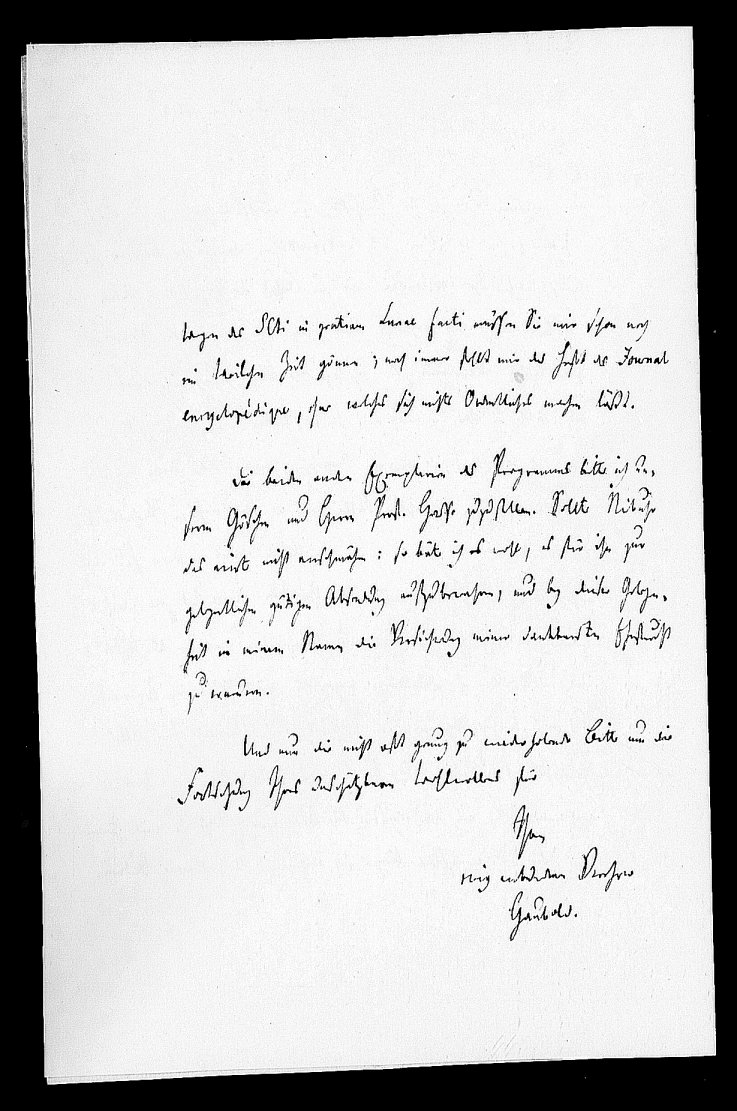 wegen des SCti in gratiam Lunae facti müssen Sie mir schon noch
ein Weilchen Zeit gönnen; noch immer fehlt mir das Heft des Journal
encyclopédique, ohne welches sich nichts Ordentliches machen läßt.
Die beiden andern Exemplarien des Programms bitte ich Un-
serm Göschen und Herrn Prof. Hasse zuzustellen. Sollte Niebuhr
das nicht verschmähen: so bäte ich es wohl, es für ihn zur
gelegentlichen gütigen Absendung aufzubewahren, und bey dieser Gelegen-
heit in meinem Namen die Versicherung meiner dankbarsten Ehrfurcht
zu erneuern.
Und nun die nicht oft genug zu wiederholende Bitte um die
Fortsetzung Ihres unschätzbaren Wohlwollens für
Ihren
ewig verbundenen Verehrer
Haubold.